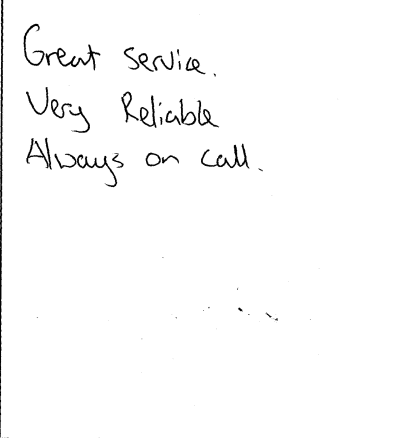 Great service.
Very Reliable
Always on call.